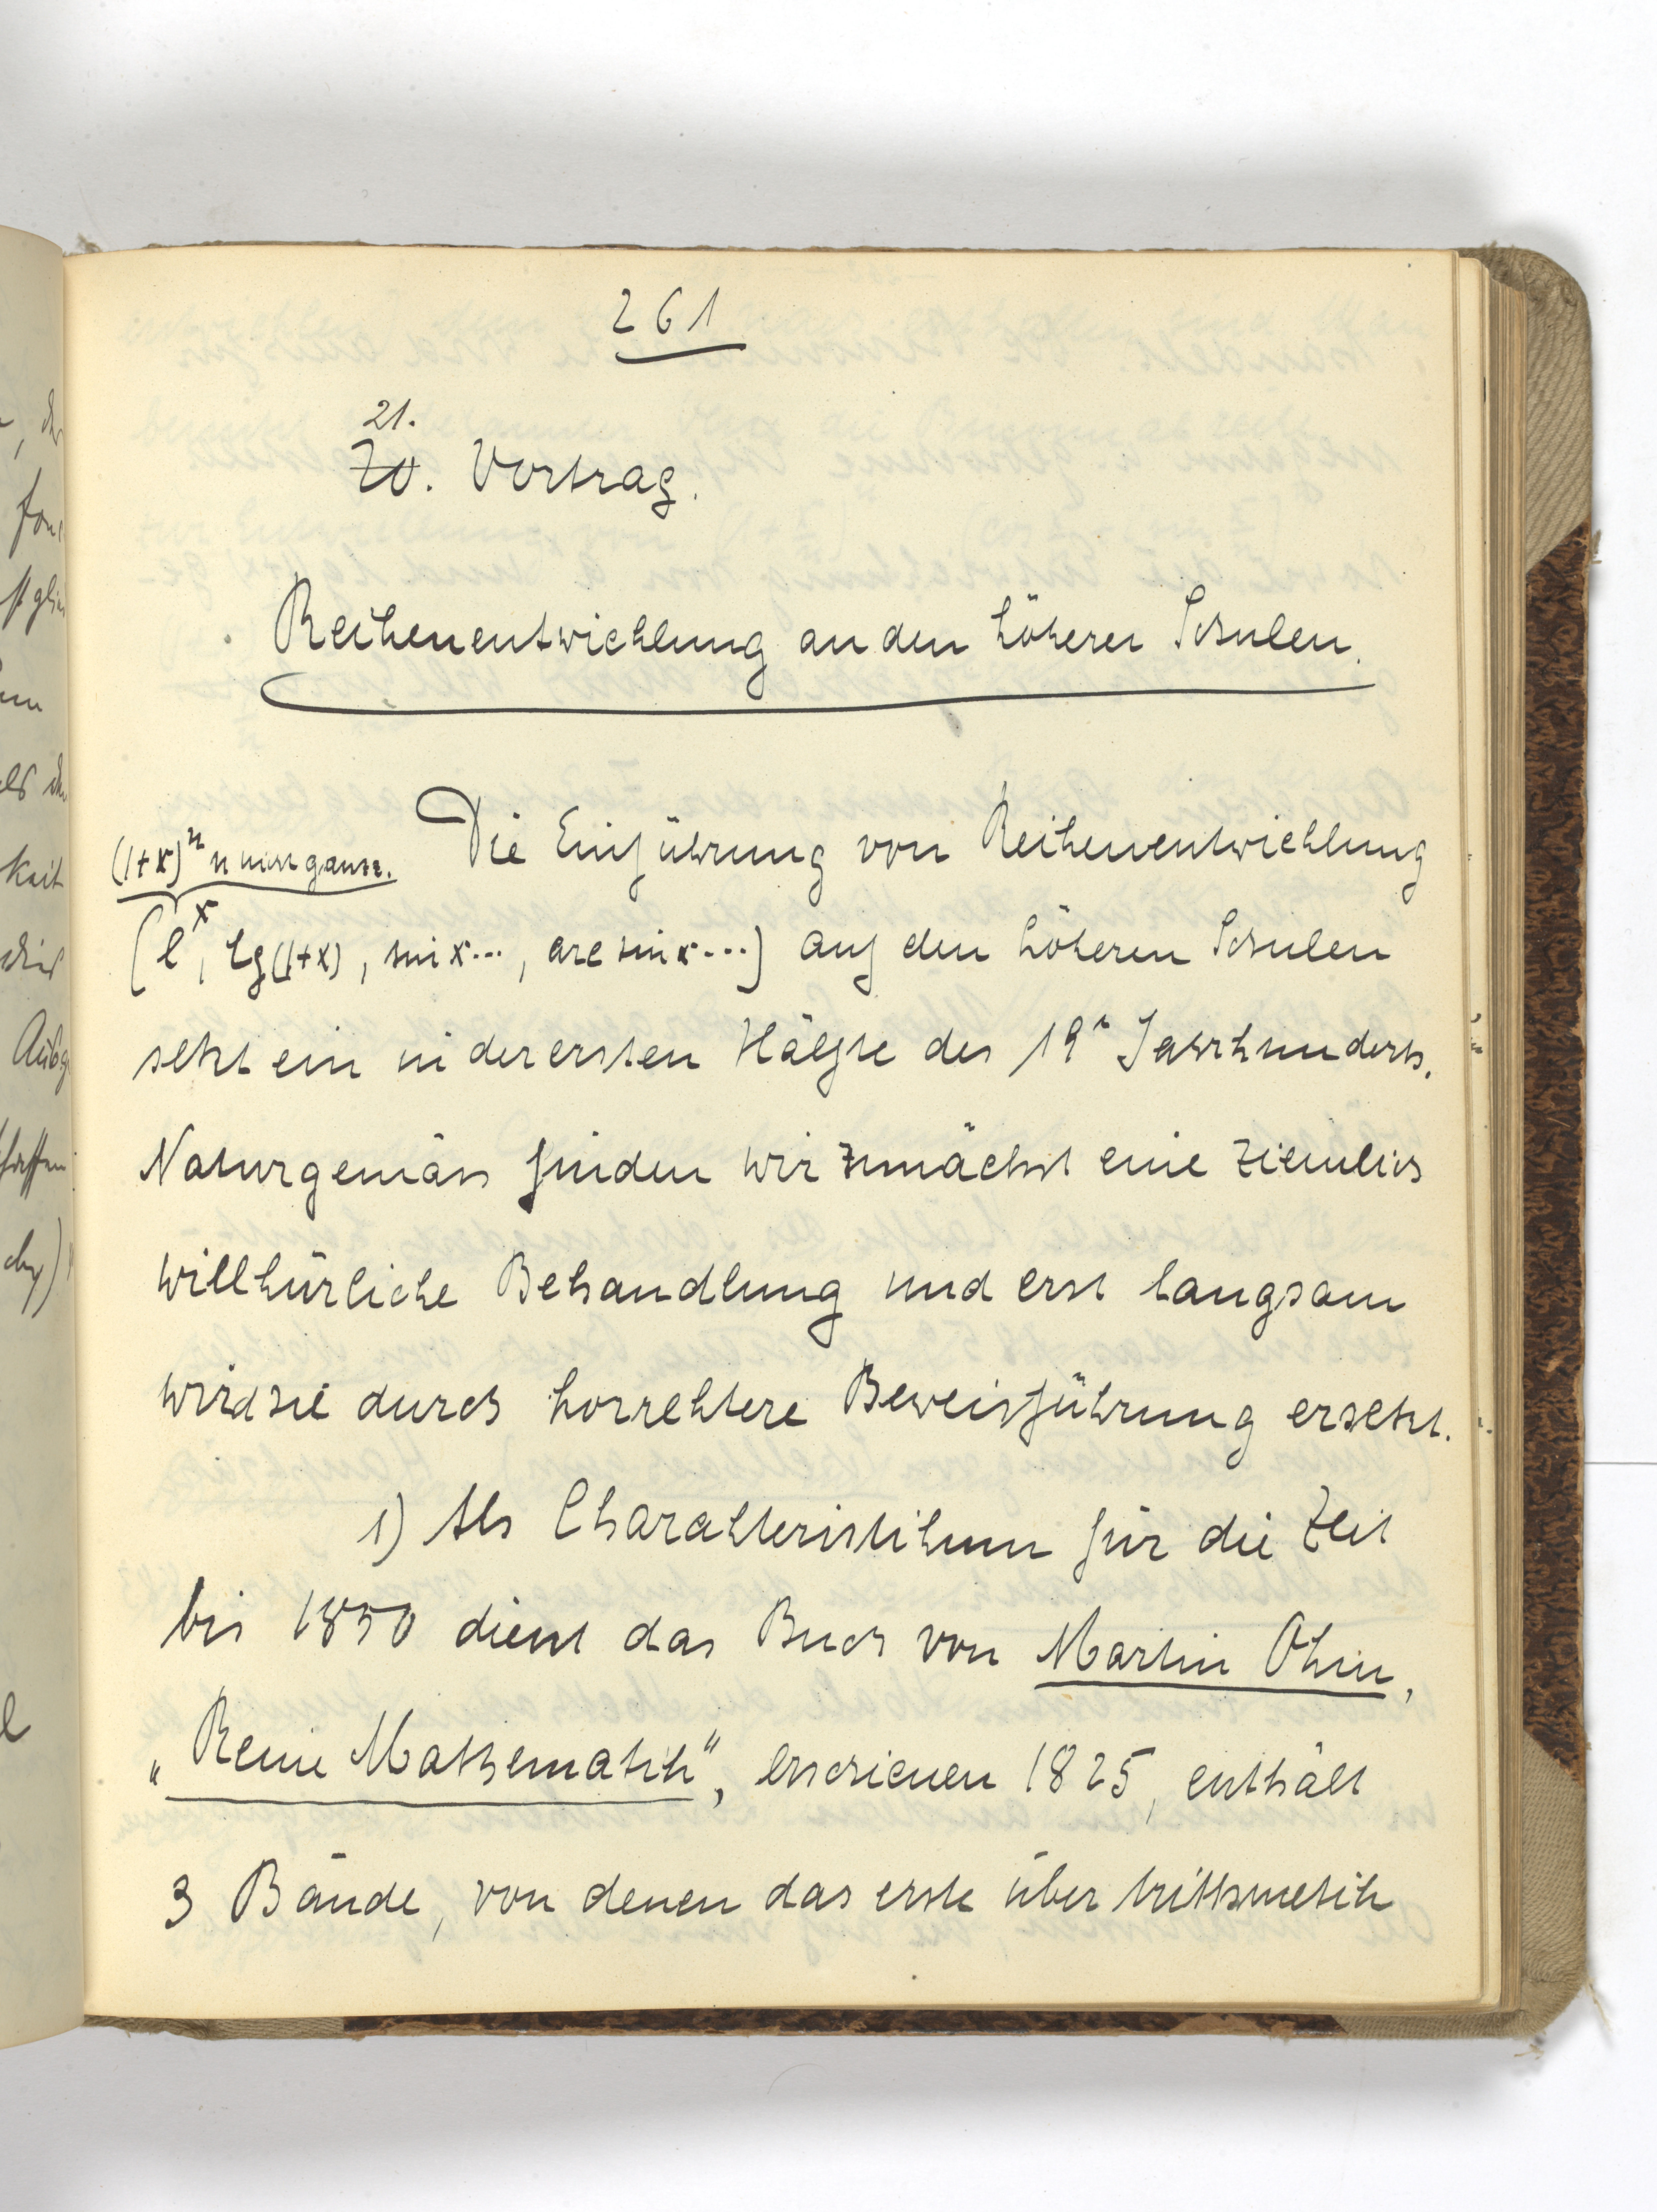 261
21.
20. Vortrag.
Reihenentwicklung an den höheren Schulen.
Die Einführung von Reihenentwicklung
(1+x)ⁿ n nicht ganz.
(eˣ, lg(1+x), sin x..., arc sin x...) auf den höheren Schulen
setzt ein in der ersten Hälfte des 19ⁿ Jahrhunderts.
Naturgemäss finden wir zunächst eine ziemlich
willkürliche Behandlung und erst langsam
wird sie durch korrektere Beweisführung ersetzt.
1) Als Charakteristikum für die Zeit
bis 1850 dient das Buch von Martin Ohm,
„Reine Mathematik“, erschienen 1825, enthält
3 Bände, von denen das erste über Arithmetik